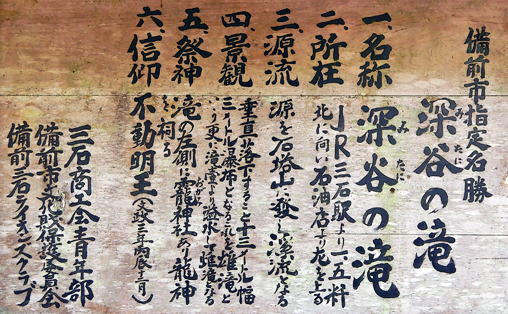 備前市指定名勝
深谷の滝
みたに
一、名称 深谷の滝
みたに
二、所在 JR三石駅より一、五粁
北に向い石油店より左を上る
三、源流 源を石塔山に発し渓流となる
四、景観 垂直落下すること十三メートル幅
三メートル瀑布となるこれを雄滝と
いう更に滝壺より
五、祭神 滝の左側に龗神社あり龍神
を祠る
六、信仰 不動明王
三石商工会青年部
備前市文化財保護委員会
備前三石ライオンズクラブ